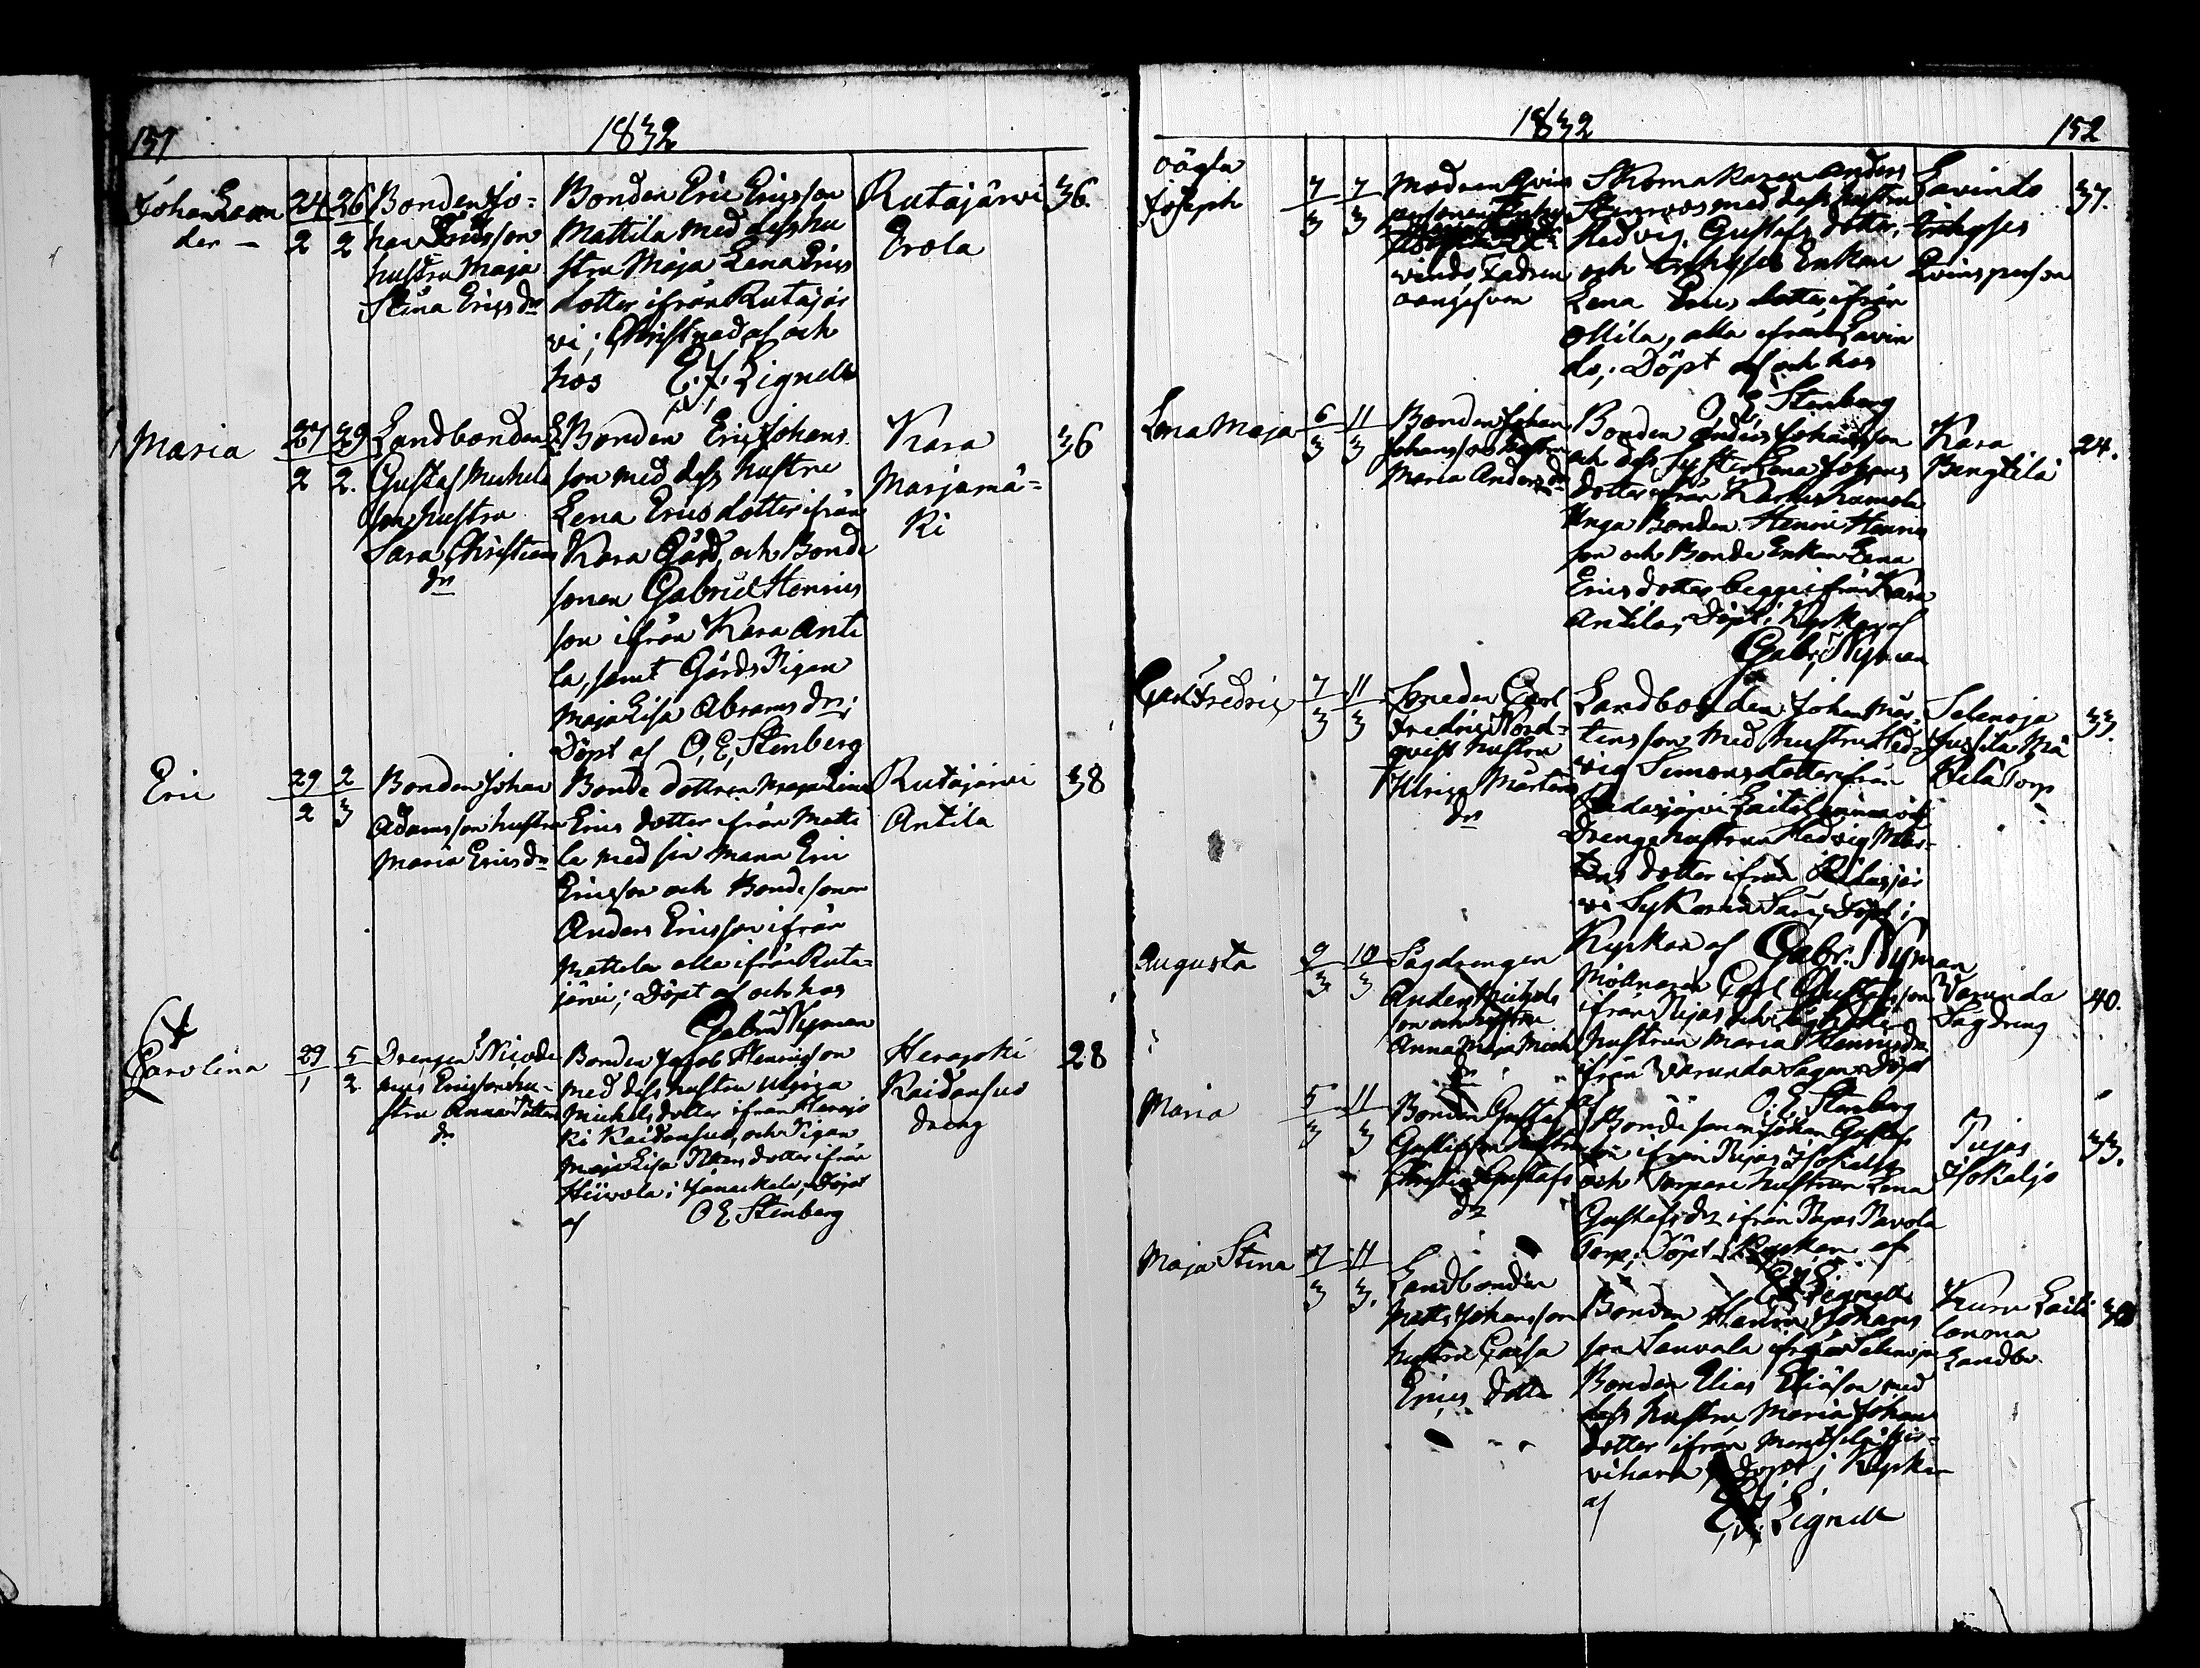 151
1832
Johan Lean
der —
24/2
26/2
Bonden Jo-
han Ericsson
hustru Maja
Stina Ericsdr
Bonden Eric Ericsson
Mattila med dess hu
stru Maja Lena Erics
dotter ifrån Rutajär
vi; Christnad af och
hos E. J. Lignell
Rutajärvi
Erola
36.
Maria
27/2
29/2.
Landbonden
Gustaf Michels
son hustru
Sara Christians
dr
Bonden Eric Johans
son med dess hustru
Lena Ericsdotter ifrån
Kara Gård, och Bonde
sonen Gabriel Henrics
son ifrån Kara Anti
la, samt Gårds Pigan
Maja Lisa Abrams dr;
Döpt af O. E. Stenberg
Kara
Marjamä-
ki
36
Eric
29/2
2/3
Bonden Johan
Adamsson hustru
Maria Ericsdr
Bonde dottren Maja Lisa
Erics dotter ifrån Matti
la med sin man Eric
Ericsson och Bondesonen
Anders Ericsson ifrån
Mattila alla ifrån Ruta-
järvi; Döpt af och hos
Gabriel Nyman
Rutajärvi
Antila
38
Carolina
29/1
5/2
Drengen Nicode
mus Ericsson hu-
stru Anna Petters
dr
Bonden Jacob Henricsson
med dess hustru Ulrica
Michelsdotter ifrån Herajo
ki Kaidansuo, och Pigan
Maja Lisa Petters dotter ifrån
Hiivola i Janackala; Döpt
af O E Stenberg
Herajoki
Kaidansuo
dreng
28
1832
152
oägta
Joseph
7/3
7/3
Modren Qvins
personen
vindo Fadren
oangifven
Skomakaren Anders
Stenroos med dess hustru
Hedvig Gustafs dotter,
och Enkan
Lena Erics dotter, ifrån
Ollila, alla ifrån Lavin
do; Döpt af och hos
O. E. Stenberg
Lavindo
Qvinsperson
37.
Lena Maja
6/3
11/3
Bonden Johan
Johansson hustru
Maria Andersdr
Bonden Anders Johansson
och dess Syster Lena Johans
dotter ifrån
Unga Bonden Henric Henrics
son och Bonde Enkan Lena
Erics dotter begge ifrån Kara
Antila; Döpt i Kyrkan af
Gabr. Nyman
Kara
Bengtilä
24.
Carl Fredric
7/3
11/3
Smeden Carl
Fredric Nord-
qvist hustru
Ulrica Mårtens
dr
Landbonden Johan Mår-
tensson med hustru Hed-
vig Simons dotter ifrån
Drengehustrun Hedvig Mår-
tens dotter ifrån
Döpt i
Kyrkan af Gabr. Nyman
Selenoja
Jussila Mä
kelä Torp
33.
Augusta
9/3
10/3
Sågdrengen
Anders Michels
son och hustru
Anna Maja Mich
dr
Möllnaren Carl Gustafsson
ifrån Pejas och
hustrun Maria Henricsdr
ifrån Varunda Sågen; Döpt
af O. E. Stenberg
Varunda
Sågdreng
40.
Maria
5/3
11/3
Bonden Gustaf
hustru
Christina Gustafs
dr
Bondesonen Johan Gustafs
son ifrån Pejas Isokaljo
och Torpare hustrun Lena
Gustafs dr ifrån Pejas Pavola
Torp; Döpt i Kyrkan af
E J Lignell
Pejas
Isokaljo
33.
Maja Stina
7/3
11/3.
Landbonden
Matts Johansson
hustru Caisa
Erics dotter
Bonden Henric Johans
son Sauvala ifrån Selenoja
Bonden Elias Eliasson med
dess hustru Maria Johans
dotter ifrån Mentsälä Hir-
vihara; Döpt i Kyrkan
af E. J. Lignell
Laiti
lanma
Landbo